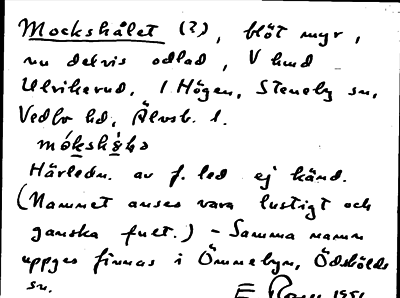 Mockshålet (?), blöt myr,
nu delvis odlad, V hmd
Ulrikerud, 1 Högen, Steneby sn,
Vedbo hd, Älvsb. l.
Härledn. av f. led ej känd.
(Namnet anses vara lustigt och
ganska fult.) - Samma namn
uppges finnas i Ömmebyn, Ödskölds
sn.